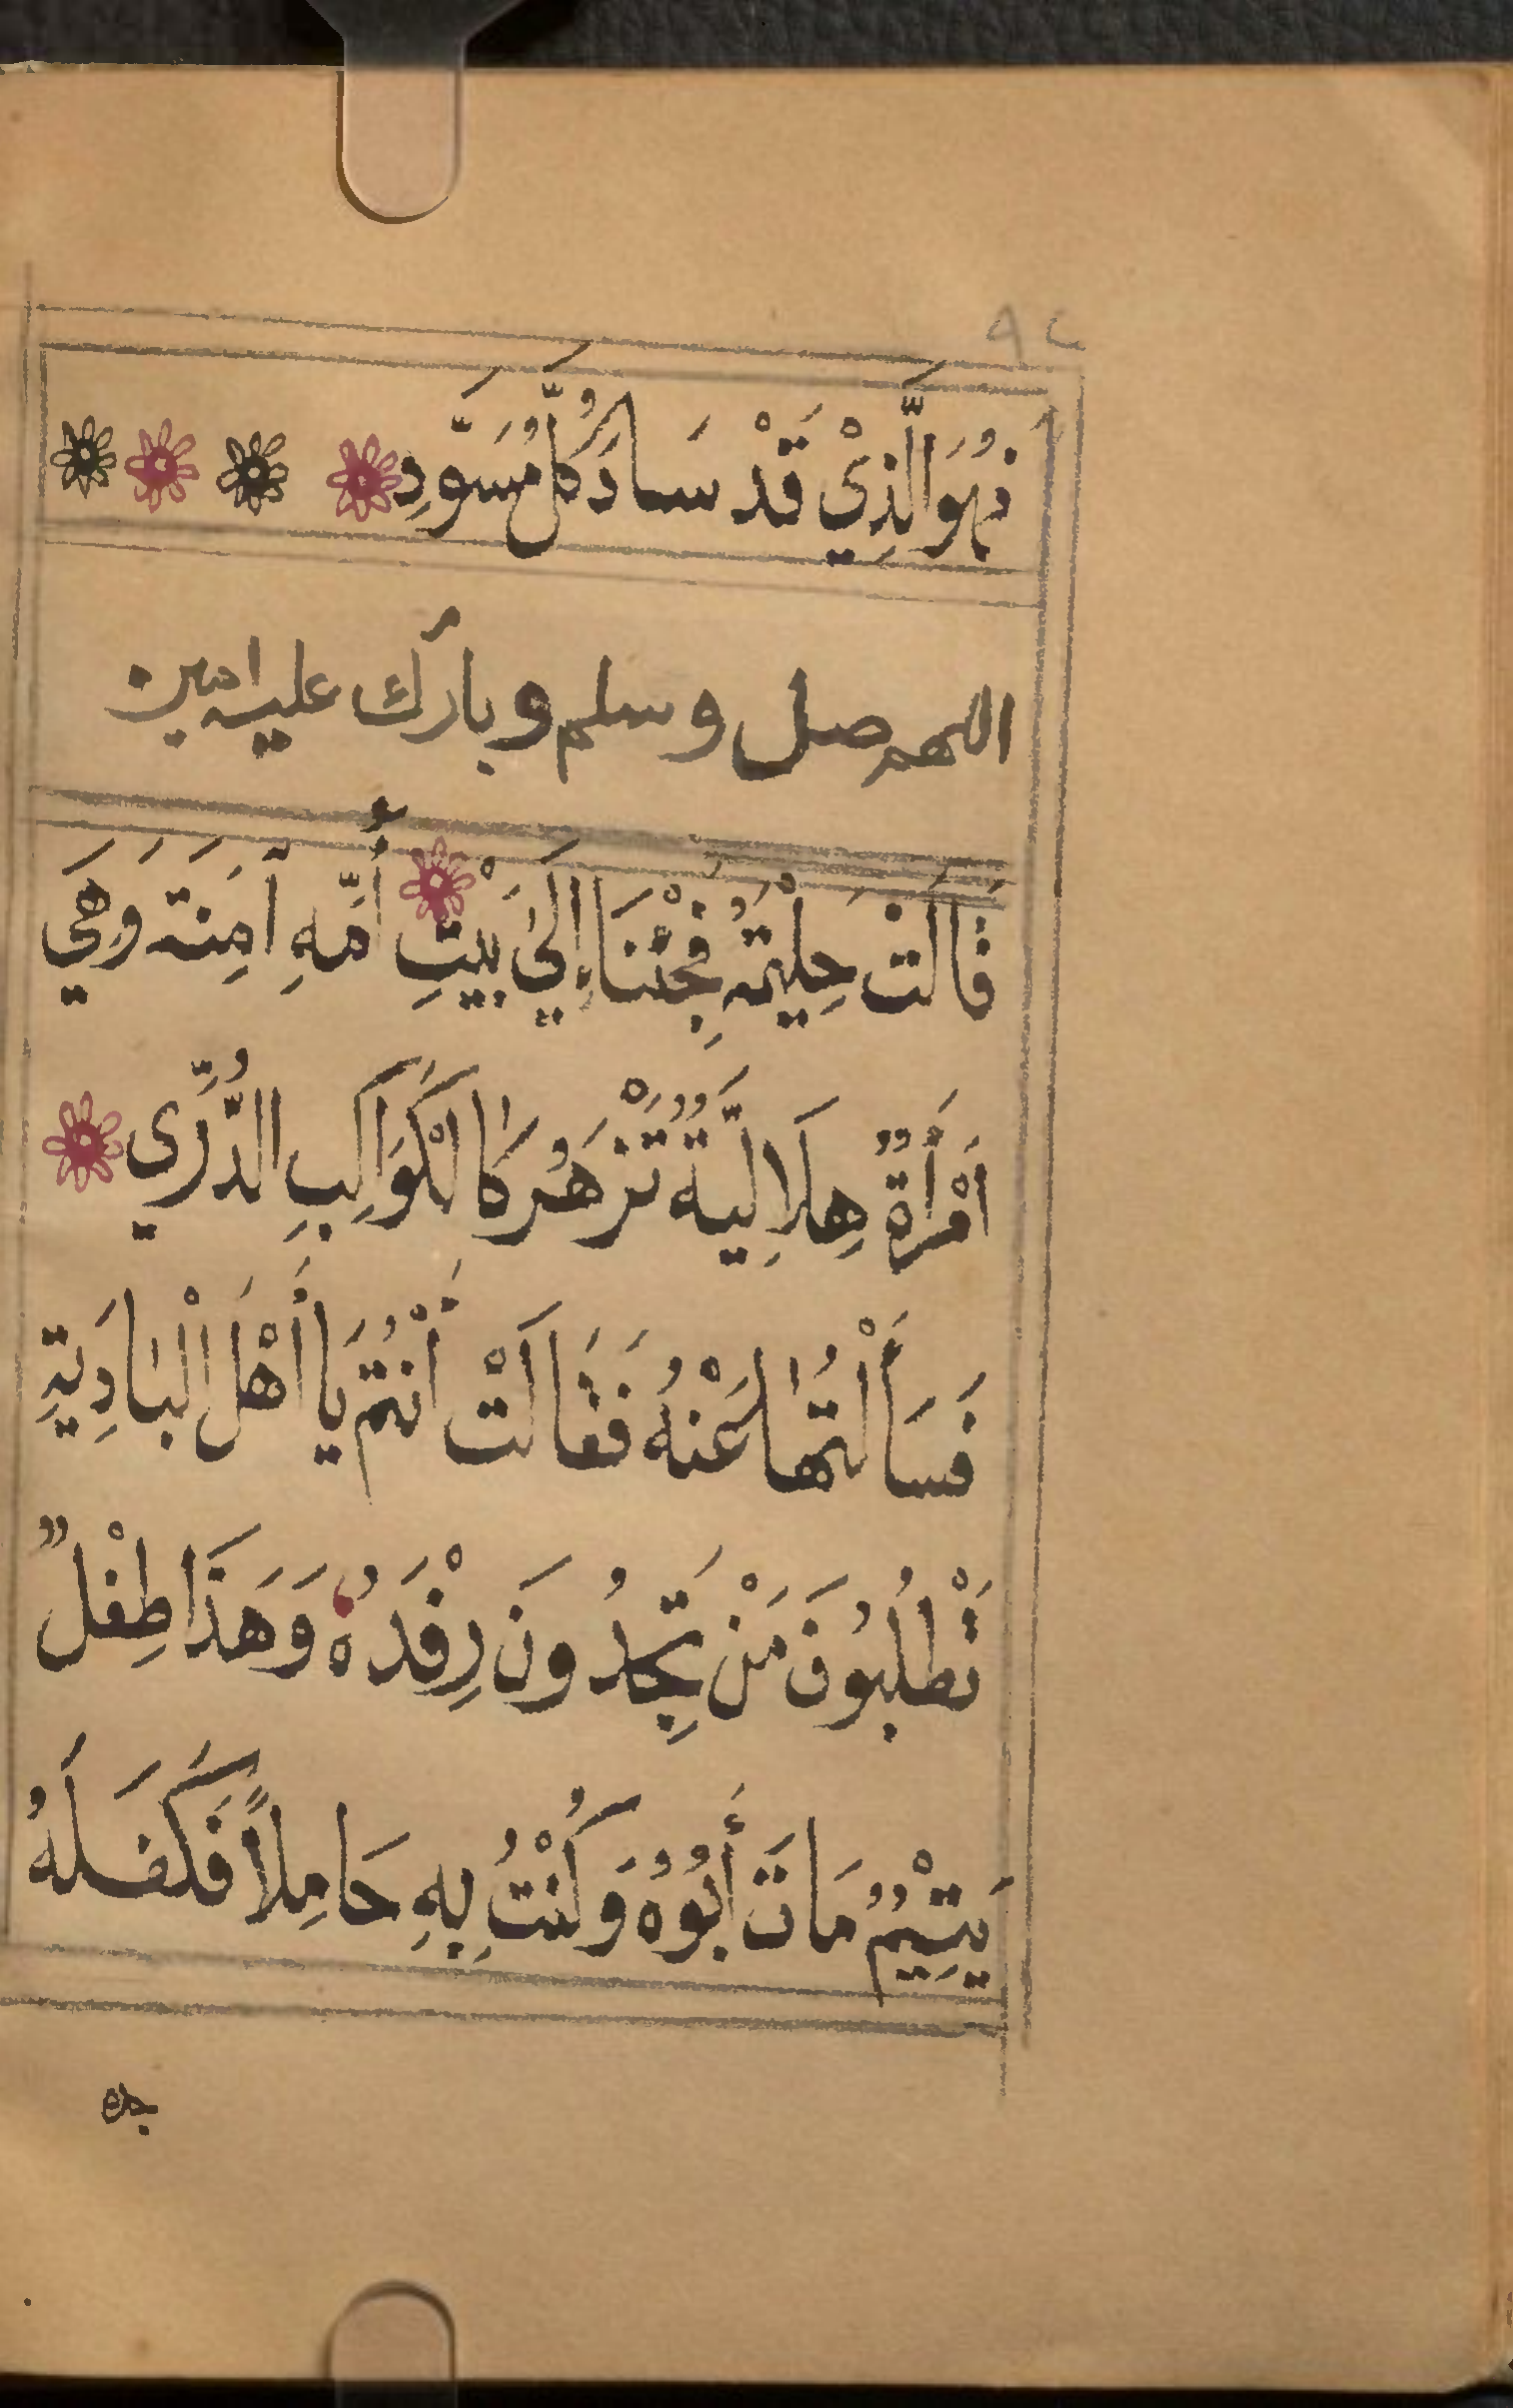 ٩٤
فَهُوَ الَّذِيْ قَدْ سَادَ كُلَّ مُسَوَّدِ
اللهم صل وسلم وبارك عليه امين
قَالَتْ حَلِيْمَةُ فَجِئْنَا إِلَىٰ بَيْتِ أُمِّهِ آمِنَة وَهِيَ
اَمْرَأَةٌ هِلَالِيَّةٌ تَزْهَرُ كَالْكَوَاكِبِ الدُّرِّي
فَسَأَلْتُهَا عَنْهُ فَقَالَتْ أَنْتُمْ يَا أَهْلَ الْبَادِيَةِ
تَطْلُبُونَ مَنْ تَجِدُونَ رِفْدَهُ وَهَذَا طِفْلٌ
يَتِيْمٌ مَاتَ أَبُوُهُ وَكُنْتُ بِهِ حَامِلًا فَكَفَلَهُ
جده